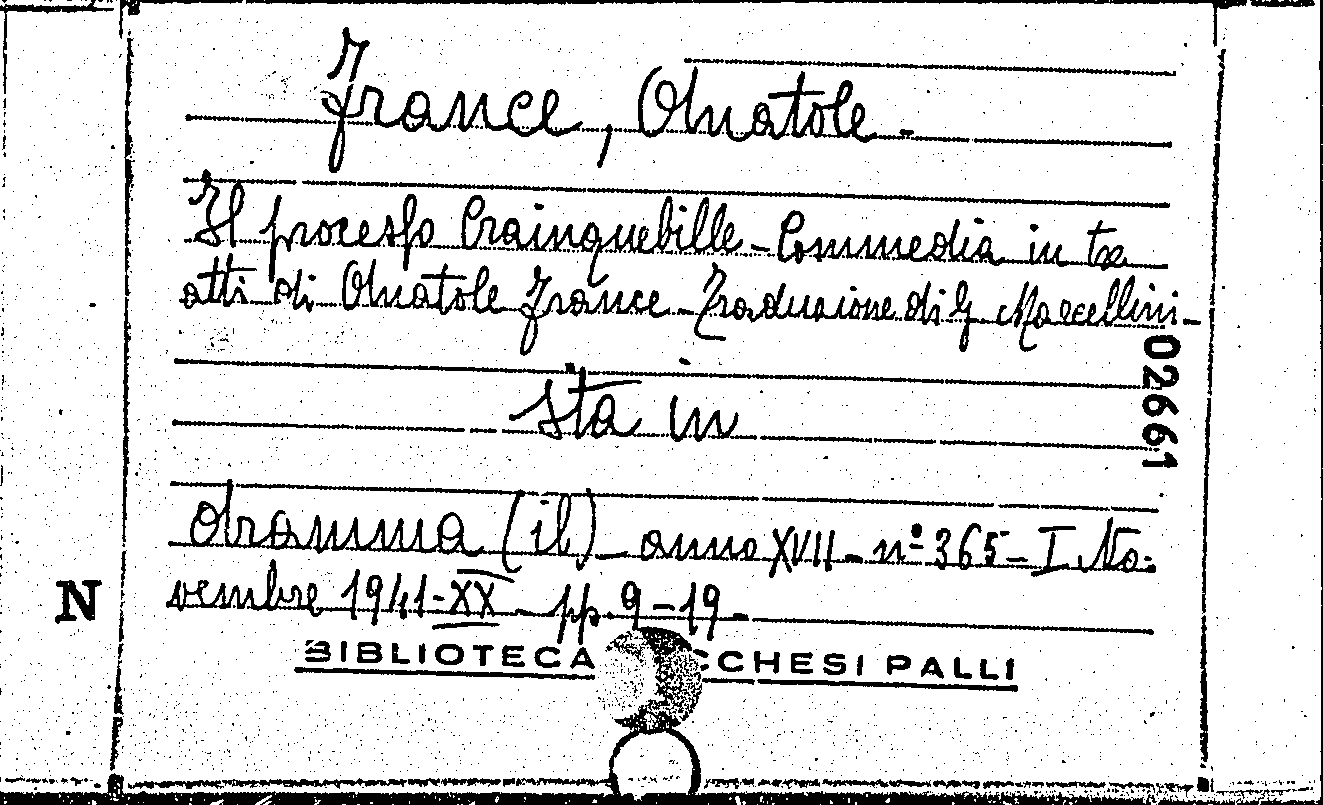 France, Anatole -
Il processo Crainquebille - Commedia in tre
atti di Anatole France - Traduzione di G. Marcellini -
02661
sta in
Dramma (il) - anno XVII - n° 365 - I No-
vembre 1941 - XX - pp. 9 - 19 -
N
BIBLIOTECA CCHESI PALLI